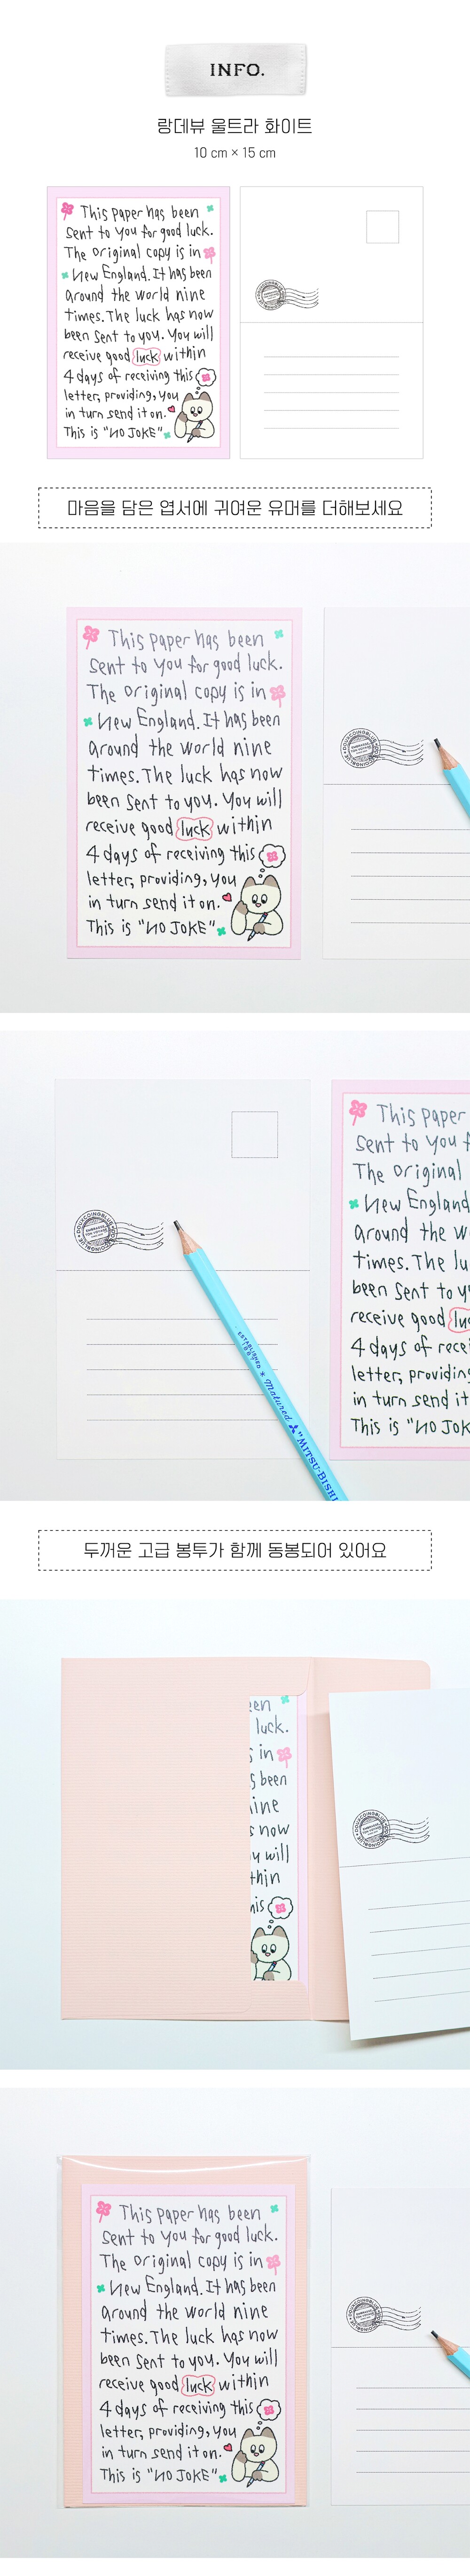 INFO.
랑데뷰 울트라 화이트
10 cm × 15 cm
This paper has been
sent to you for good luck.
The original copy is in
New England. It has been
around the world nine
times. The luck has now
been sent to you. You will
receive good luck within
4 days of receiving this
letter, providing, you
in turn send it on.
This is "NO JOKE"
마음을 담은 엽서에 귀여운 유머를 더해보세요
This paper has been
sent to you for good luck.
The original copy is in
New England. It has been
around the world nine
times. The luck has now
been sent to you. You will
receive good luck within
4 days of receiving this
letter, providing, you
in turn send it on.
This is "NO JOKE"
This paper
sent to you f
The original
New England
around the w
times. The lu
been sent to y
receive good lu
4 days of recei
letter, providing
in turn send it
This is "NO JOK
ESTABLISHED
1887
Matured
"MITSU-BISHI
두꺼운 고급 봉투가 함께 동봉되어 있어요
een
luck.
in
s been
ine
s now
u will
thin
his
This paper has been
sent to you for good luck.
The original copy is in
New England. It has been
around the world nine
times. The luck has now
been sent to you. You will
receive good luck within
4 days of receiving this
letter, providing, you
in turn send it on.
This is "NO JOKE"